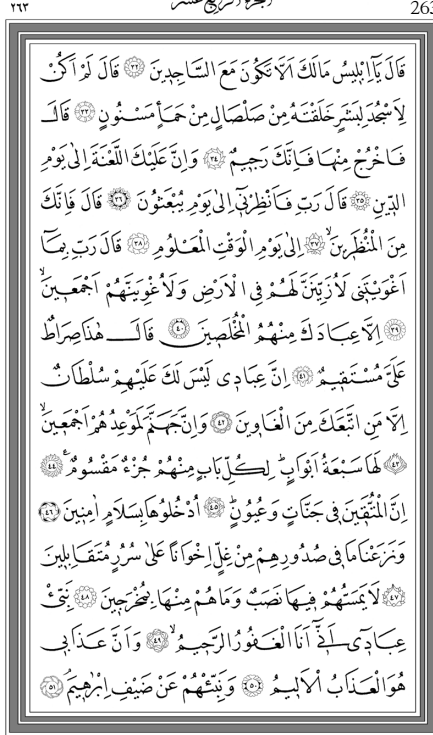 ٢٦٣ الجزء الرابع عشر 263
قَالَ يَٓا اِبْلِيسُ مَالَكَ اَلَّا تَكُونَ مَعَ السَّاجِدِينَ ﴿٣٢﴾ قَالَ لَمْ اَكُنْ
لِاَسْجُدَ لِبَشَرٍ خَلَقْتَهُ مِنْ صَلْصَالٍ مِنْ حَمَأٍ مَسْنُونٍ ﴿٣٣﴾ قَالَ
فَاخْرُجْ مِنْهَا فَاِنَّكَ رَجِيمٌ ﴿٣٤﴾ وَاِنَّ عَلَيْكَ اللَّعْنَةَ اِلٰى يَوْمِ
الدِّينِ ﴿٣٥﴾ قَالَ رَبِّ فَاَنْظِرْنِٓي اِلٰى يَوْمِ يُبْعَثُونَ ﴿٣٦﴾ قَالَ فَاِنَّكَ
مِنَ الْمُنْظَرِينَۙ ﴿٣٧﴾ اِلٰى يَوْمِ الْوَقْتِ الْمَعْلُومِ ﴿٣٨﴾ قَالَ رَبِّ بِمَٓا
اَغْوَيْتَنِي لَاُزَيِّنَنَّ لَهُمْ فِي الْاَرْضِ وَلَاُغْوِيَنَّهُمْ اَجْمَعِينَۙ
﴿٣٩﴾ اِلَّا عِبَادَكَ مِنْهُمُ الْمُخْلَصِينَ ﴿٤٠﴾ قَالَ هٰذَا صِرَاطٌ
عَلَيَّ مُسْتَقِيمٌ ﴿٤١﴾ اِنَّ عِبَادِي لَيْسَ لَكَ عَلَيْهِمْ سُلْطَانٌ
اِلَّا مَنِ اتَّبَعَكَ مِنَ الْغَاوِينَ ﴿٤٢﴾ وَاِنَّ جَهَنَّمَ لَمَوْعِدُهُمْ اَجْمَعِينَۙ
﴿٤٣﴾ لَهَا سَبْعَةُ اَبْوَابٍۜ لِكُلِّ بَابٍ مِنْهُمْ جُزْءٌ مَقْسُومٌ۟ ﴿٤٤﴾
اِنَّ الْمُتَّقِينَ فِي جَنَّاتٍ وَعُيُونٍۜ ﴿٤٥﴾ اُدْخُلُوهَا بِسَلَامٍ اٰمِنِينَ ﴿٤٦﴾
وَنَزَعْنَا مَا فِي صُدُورِهِمْ مِنْ غِلٍّ اِخْوَانًا عَلٰى سُرُرٍ مُتَقَابِلِينَ
﴿٤٧﴾ لَا يَمَسُّهُمْ فِيهَا نَصَبٌ وَمَا هُمْ مِنْهَا بِمُخْرَجِينَ ﴿٤٨﴾ نَبِّئْ
عِبَادِٓي اَنِّٓي اَنَا الْغَفُورُ الرَّحِيمُۙ ﴿٤٩﴾ وَاَنَّ عَذَابِي
هُوَ الْعَذَابُ الْاَلِيمُ ﴿٥٠﴾ وَنَبِّئْهُمْ عَنْ ضَيْفِ اِبْرٰهِيمَۢ ﴿٥١﴾